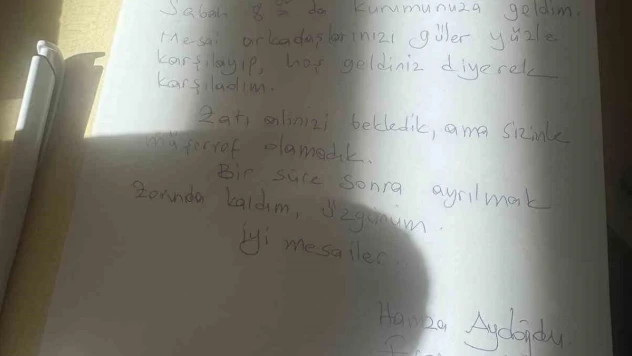 Sabah 8 00 da kurumunuza geldim.
Mesai arkadaşlarınızı güler yüzle
karşılayıp, hoş geldiniz diyerek
karşıladım.
Zatı alinizi bekledik, ama sizinle
müşerref olamadık.
Bir süre sonra ayrılmak
zorunda kaldım, üzgünüm.
iyi mesailer.
Hamza Aydoğdu